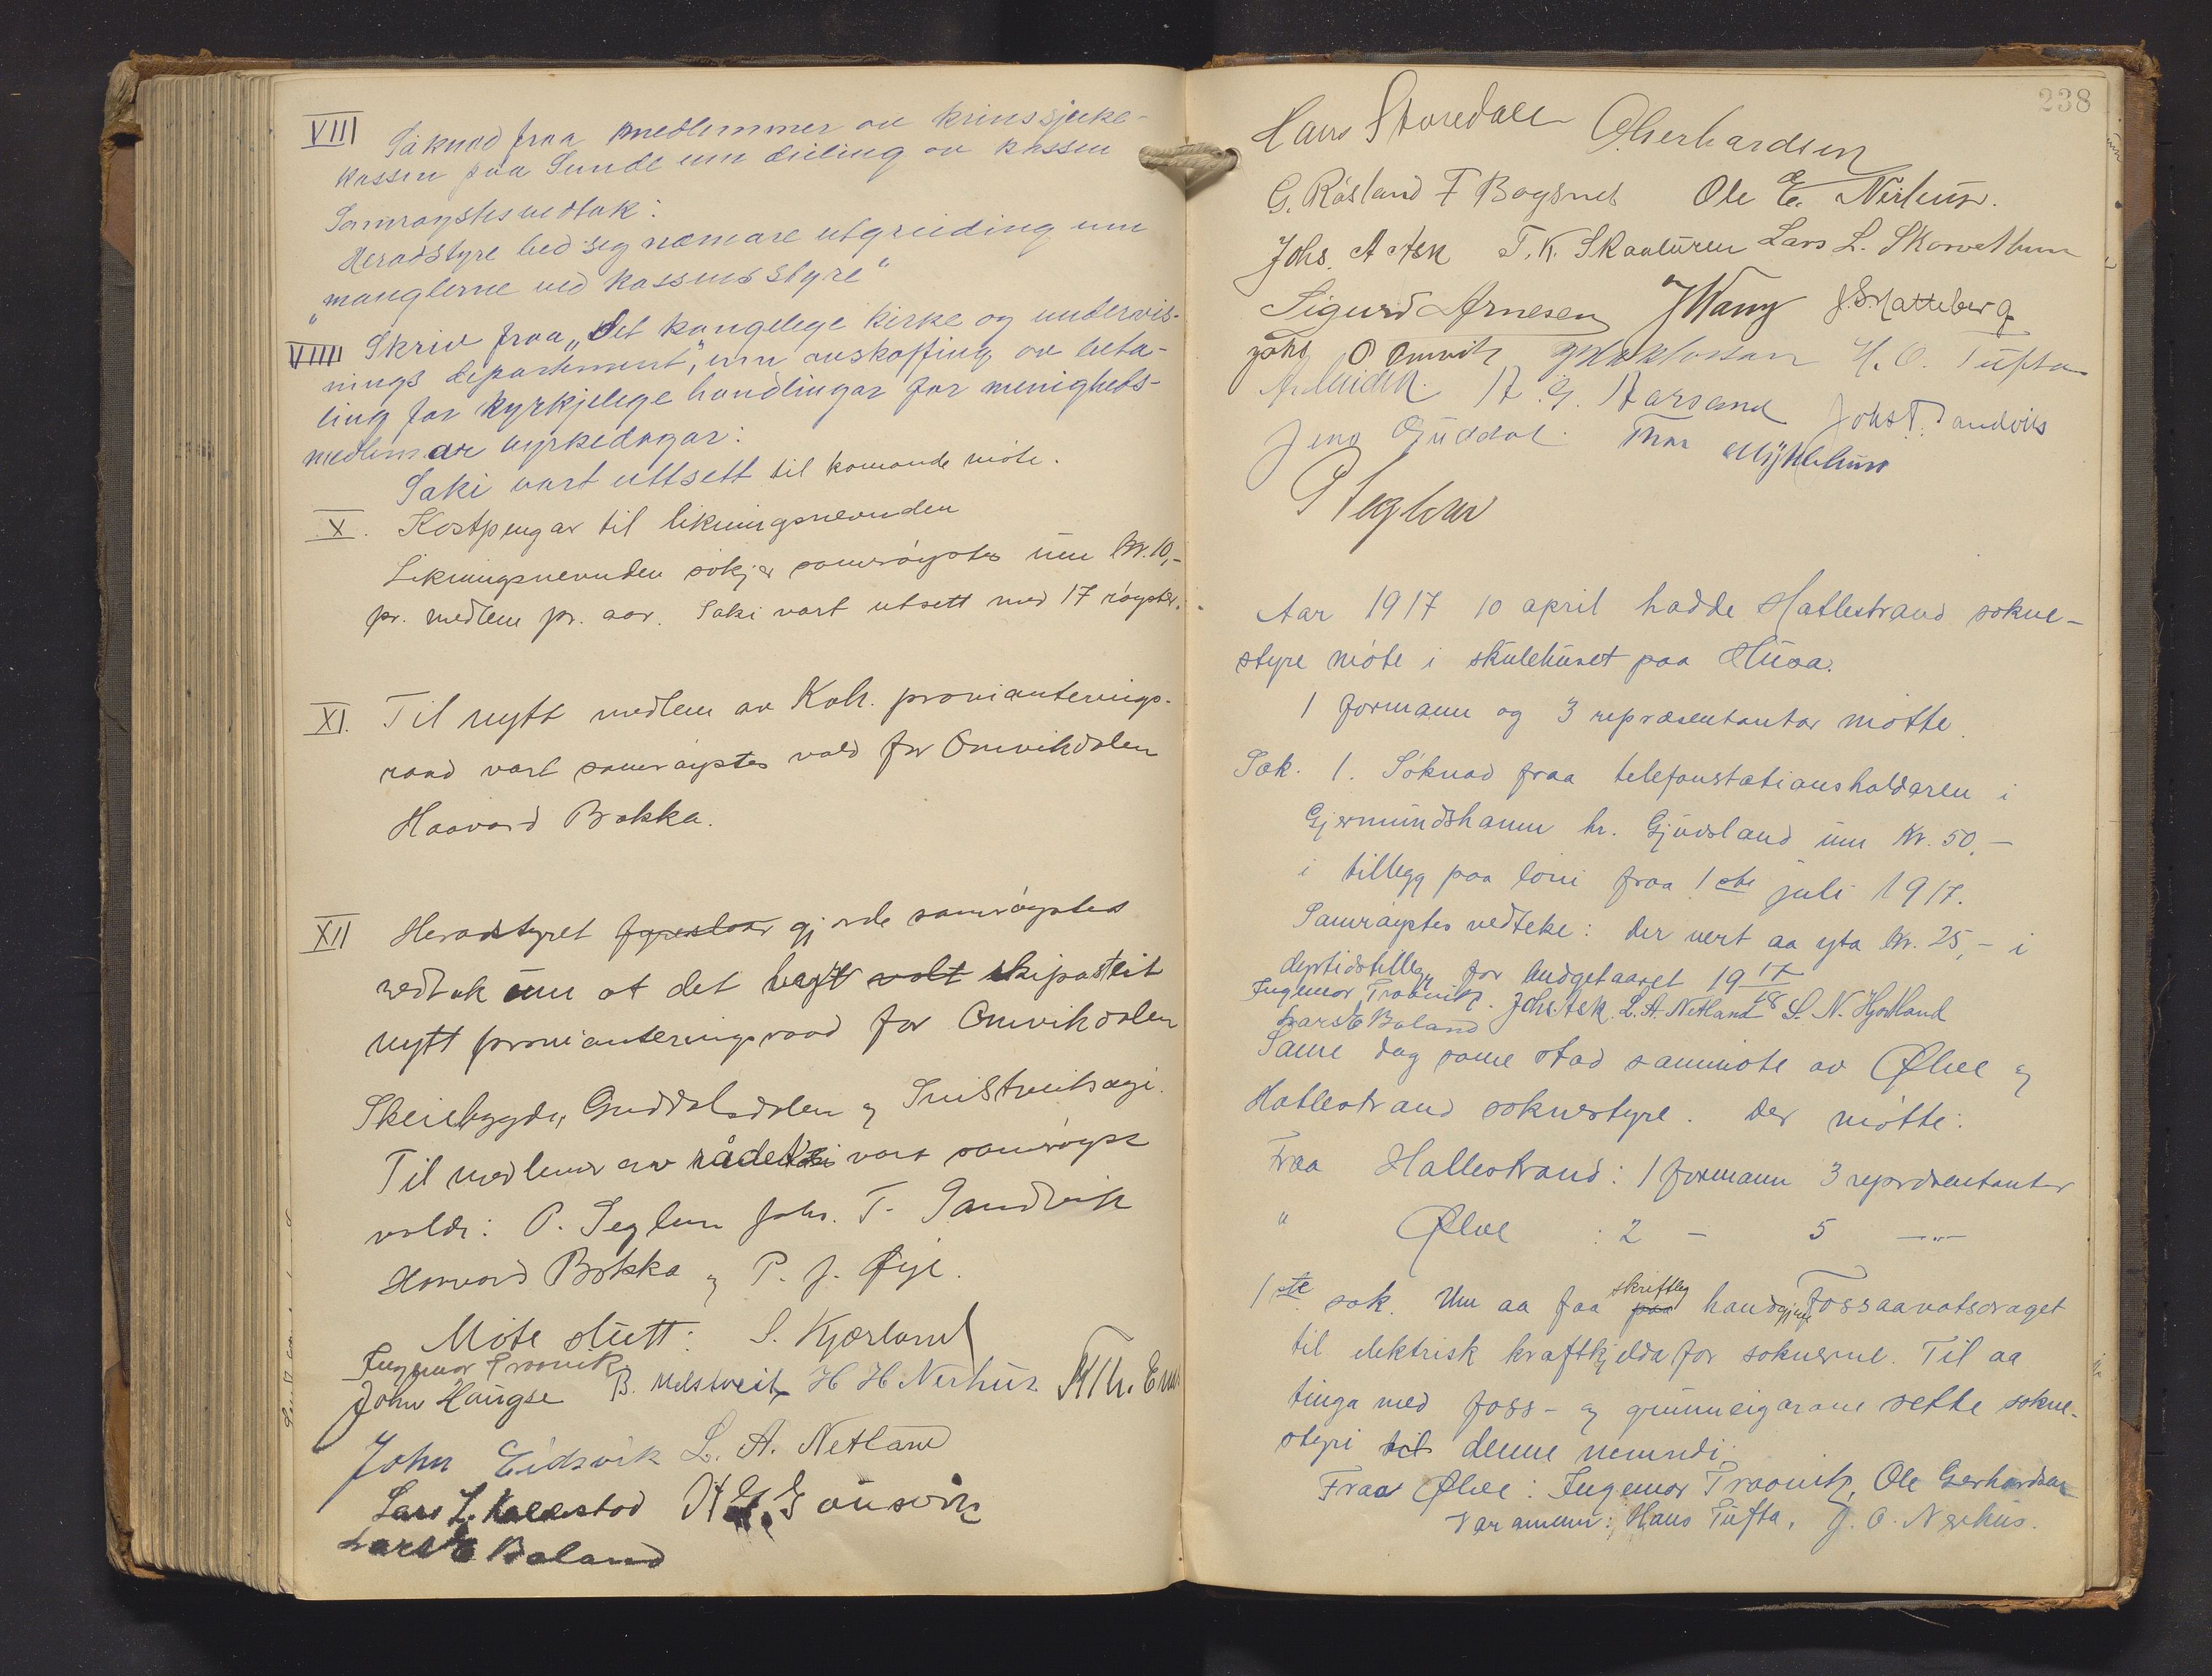 VIII Søknad fraa medlemmer av krinssjuke-
kassen paa Sunde um deiling av kassen
Samrøystes vedtak:
Heradstyre bed seg næmare utgreiding um
"manglerne ved kassens styre"
VIIII Skriv fraa "Det kongelege kirke og undervis-
nings departement", um anskaffing av beta-
ling for kyrkjelege handlingar for menigheds-
medlemar virkedagar:
Saki vart uttsett til komande møte.
X. Kostpengar til likningsnevnden
Likningsnevnden søkjer samrøystes um kr. 10,-
pr. medlem pr. aar. Saki vart utsett med 17 røyster.
XI. Til nytt medlem av Kvh. provianterings-
raad vart samrøystes vald for Omvikdalen
Haavard Bakka.
XII Heradstyret fyreslaar gjorde samrøystes
vedtak um at det vert valt skipa eit
nytt provianteringsraad for Omvikdalen
Skeiebygda, Guddalsdalen og Snilstveitsøgi.
Til medlemer av rådet vart samrøyst
valde: P. Teglun Johs. T. Sandvik
Haavard Bakka og P. J. Øye.
Møte slutt: S. Kjærland
Ingemor Traavik
John Haugse B. Melstveit H H Nerhus
John Eidsvik L. A. Netland
Lars L. Kaldestad H. G. Gausvik
Lars E Baland
238
Hans Storedale O Gerhardsen
G. Røsland F Bogsnes Ole E. Nerhus.
Johs. A Ask T. K. Skaaluren Lars L. Skorvethun
Sigurd Arnesen J Wang J. S. Matteberg
Johs O Omvik H. O. Tufta
H. G. Aarsand Johs T. Sandvik
Jens Guddal. Thor Myklebust
P Teglun
Aar 1917 10 april hadde Hatlestrand sokne-
styre møte i skulehuset paa Husa.
1 formann og 3 repræsentantar møtte.
Sak. 1. Søknad fraa telefonstationshaldaren i
Gjermundshamn hr. Gjuvsland um kr. 50,-
i tillegg paa løni fraa 1ste juli 1917.
Samrøystes vedteke: Der vert aa yta kr. 25,- i
dyrtidstillegg for budgetaaret 1917/18
Ingemor Traavik. Johs. Ask. L. A. Netland S. N. Hjortland
Lars E Baland
Same dag same stad sammøte av Ølve og
Hatlestrand soknestyre. Der møtte:
Fraa Hatlestrand: 1 formann 3 repræsentanter
" Ølve : 2 - 5 -"-
1ste sak. Um aa faa skriftleg paa handgjeve Fossaavatsdraget
til elektrisk kraftkjelda for soknerne. Til aa
tinga med foss- og grunneigarane sette sokne-
styri til denne nemndi.
Fraa Ølve: Ingemor Traavik, Ole Gerhardsen
Varamenn: Hans Tufta, J. O. Nerhus.